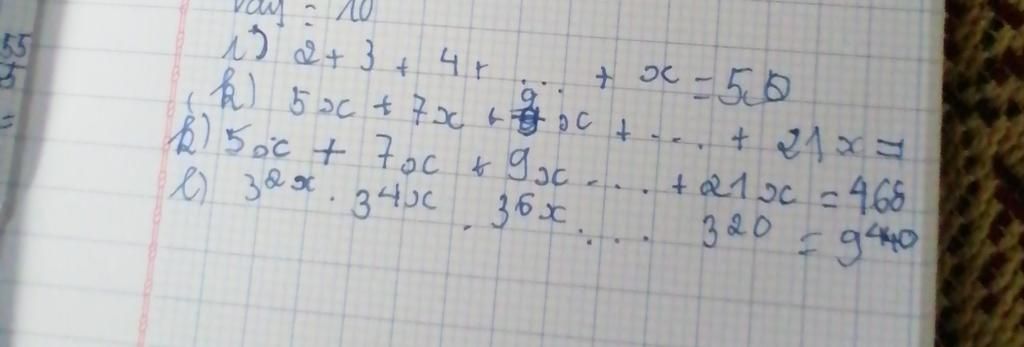 = 10
55
5
=
i) 2 + 3 + 4 + ... + x = 50
k) 5x + 7x + 9x + ... + 21x =
k) 5x + 7x + 9x ... + 21x = 468
l) 3^2x . 3^4x . 3^6x .... 3^20 = 9^440